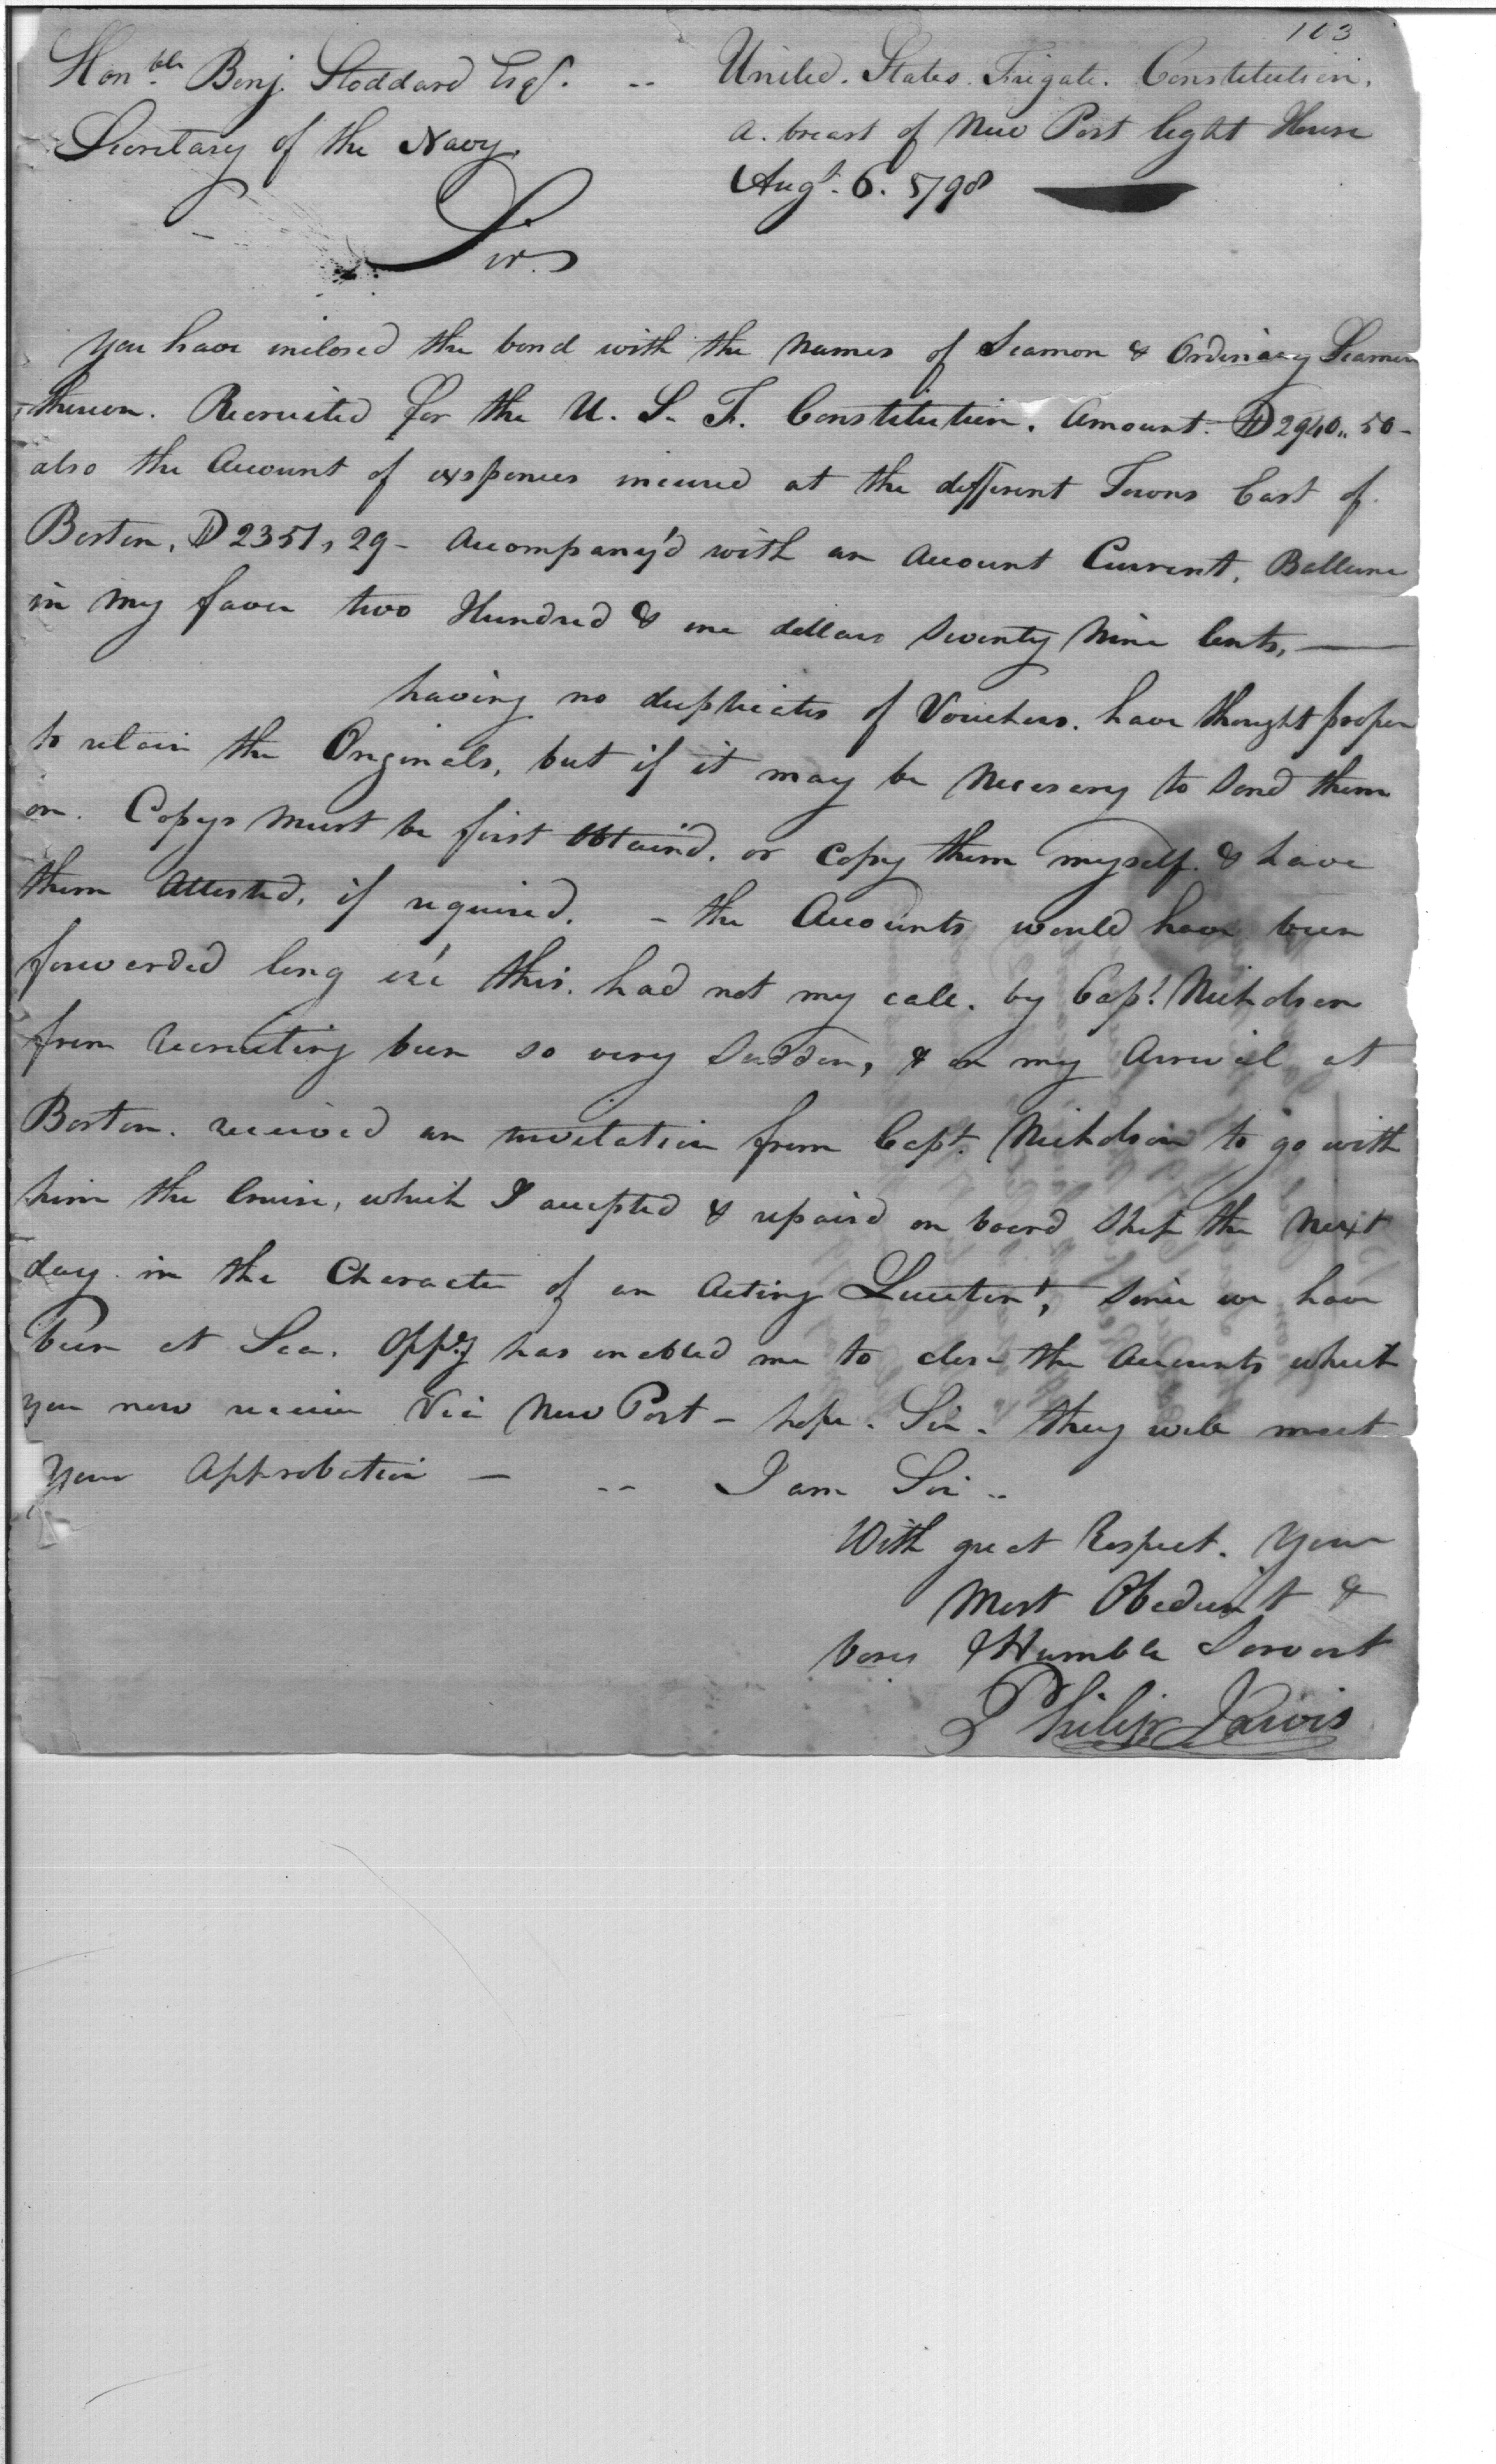 103
Hon.ble Benj. Stoddard Esq.. -- United. States. Frigate. Constitution.
Secretary of the Navy. a. breast of New Port light House
Augt. 6. 1798
Sir.
You have inclosed the bond with the Names of Seamen & Ordinary Seamen
thereon. Recruited for the U. S. F. Constitution. Amount. D 2940,, 50 -
also the Account of exspences incured at the different Towns East of
Boston, D 2351, 29 - Accompany'd with an Account Current, Ballance
in my favor two Hundred & one dollars Seventy Nine Cents, —
having no duplicates of Vouchers. have thought proper
to retain the Originals, but if it may be Necesery to Send them
on. Copys must be first Obtain'd. or Copy them myself. & have
them Attested, if required. - the Accounts would have been
forwarded long ere this. had not my call. by Capt. Nicholson
from Recruiting been so very Sudden, & on my Arrival at
Boston. received an invitation from Capt. Nicholson to go with
him the Cruise, which I accepted & repaired on board Ship the Next
day. in the Character of an Acting Lieutent, Since we have
been at Sea. Oppy has enabled me to close the Accounts which
you now receive Via New Port - hope. Sir. they will meet
Your Approbation — -- I am Sir --
With great Respect. Your
Most Obedient &
Very Humble Servant
Philip Jarvis